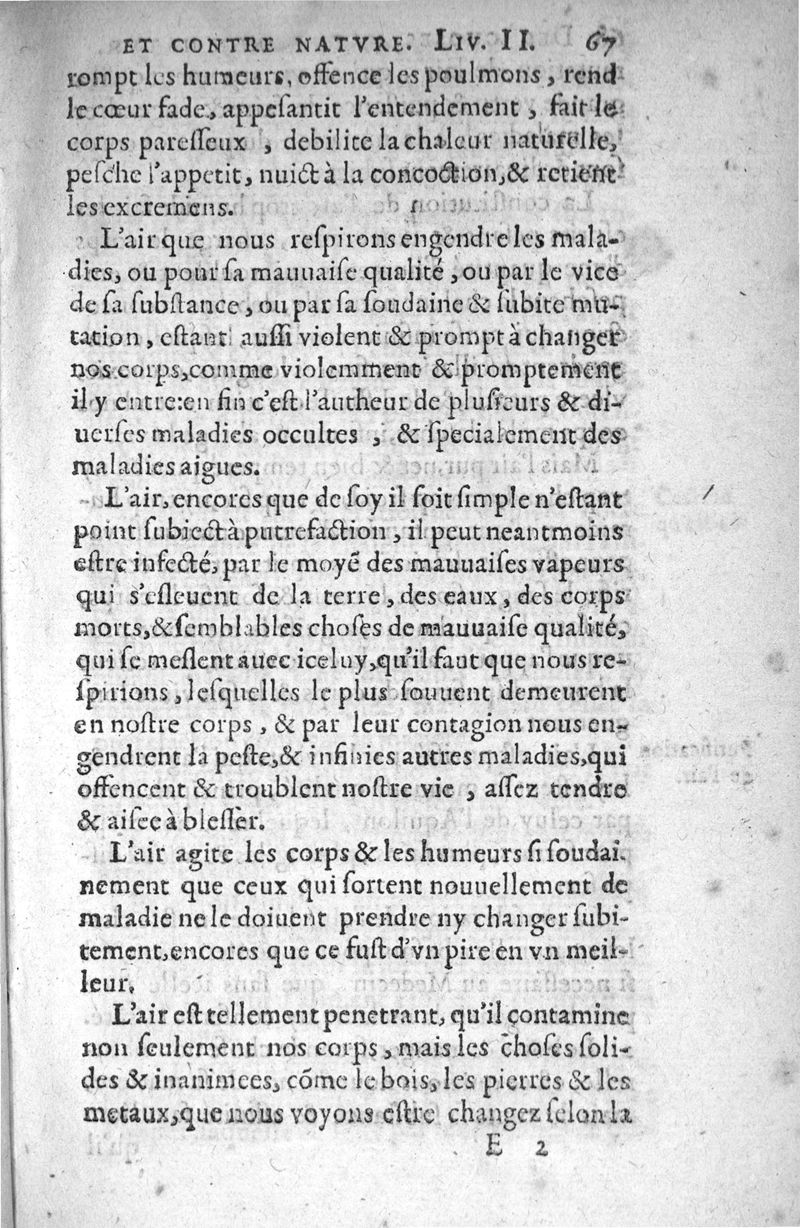 ET CONTRE NATVRE. LIV. II. 67
rompt les humeurs, offence les poulmons, rend
le cœur fade, appeſantit l'entendement, fait le
corps pareſſeux, debilite la chaleur naturelle,
peſche l'appetit, nuict à la concoction, & retient
les excremens.
L'air que nous reſpirons engendre les mala-
dies, ou pour ſa mauuaiſe qualité, ou par le vice
de ſa ſubſtance, ou par ſa ſoudaine & ſubite mu-
tation, eſtant auſſi violent & prompt à changer
nos corps, comme violemment & promptement
il y entre: en fin c'eſt l'autheur de pluſieurs & di-
uerſes maladies occultes, & ſpecialement des
maladies aigues.
L'air, encores que de ſoy il ſoit ſimple n'eſtant
point ſubiect à putrefaction, il peut neantmoins
eſtre infecté, par le moyẽ des mauuaiſes vapeurs
qui s'eſleuent de la terre, des eaux, des corps
morts, & ſemblables choſes de mauuaiſe qualité,
qui ſe meſlent auec iceluy, qu'il faut que nous re-
ſpirions, leſquelles le plus ſouuent demeurent
en noſtre corps, & par leur contagion nous en-
gendrent la peſte, & infinies autres maladies, qui
offencent & troublent noſtre vie, aſſez tendre
& aiſee à bleſſer.
L'air agite les corps & les humeurs ſi ſoudai-
nement que ceux qui ſortent nouuellement de
maladie ne le doiuent prendre ny changer ſubi-
tement, encores que ce fuſt d'vn pire en vn meil-
leur.
L'air eſt tellement penetrant, qu'il contamine
non ſeulement nos corps, mais les choſes ſoli-
des & inanimees, cõme le bois, les pierres & les
metaux, que nous voyons eſtre changez ſelon la
E 2